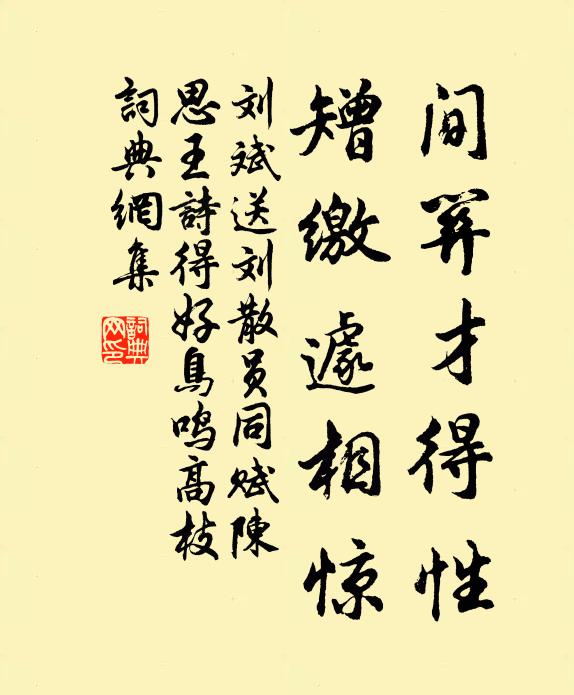 间关才得性
矰缴遽相惊
刘斌送刘散员同赋陳
思王詩得好鳥鸣高枝
詞典網集
詞典网印